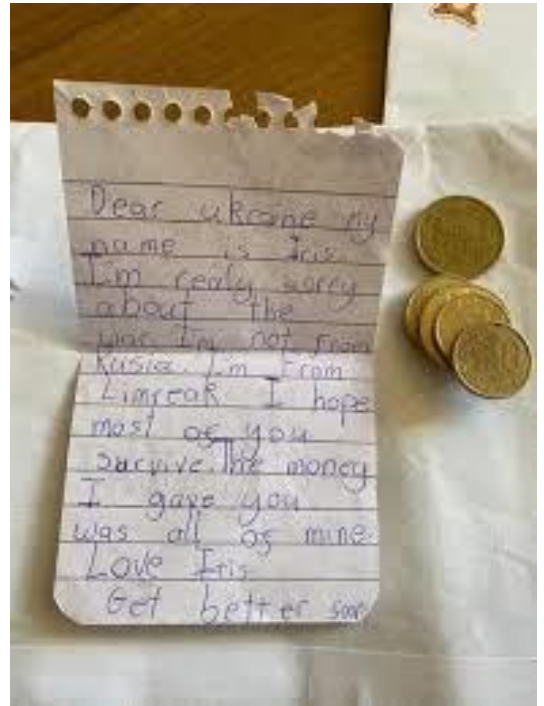 Dear ukraine my
name is Iris
I'm realy sorry
about the
war I'm not From
Rusia. I'm From
Limreak I hope
most of you
survive. The money
I gave you
was all of mine.
Love Iris
Get better soon